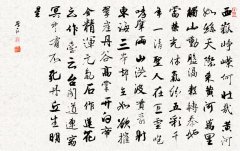 西嶽崢嶸何壯哉黃河
如絲天際來黃河萬里
觸山動盤渦轂轉秦地
雷榮光休氣紛五彩千
年一清聖人在巨靈咆
哮擘兩山洪波噴射
東海三峰却立如欲摧
翠崖丹谷高掌開白帝
金精運元氣石作蓮花
雲作台雲台閣道連窈
冥中有不死丹丘生明
星